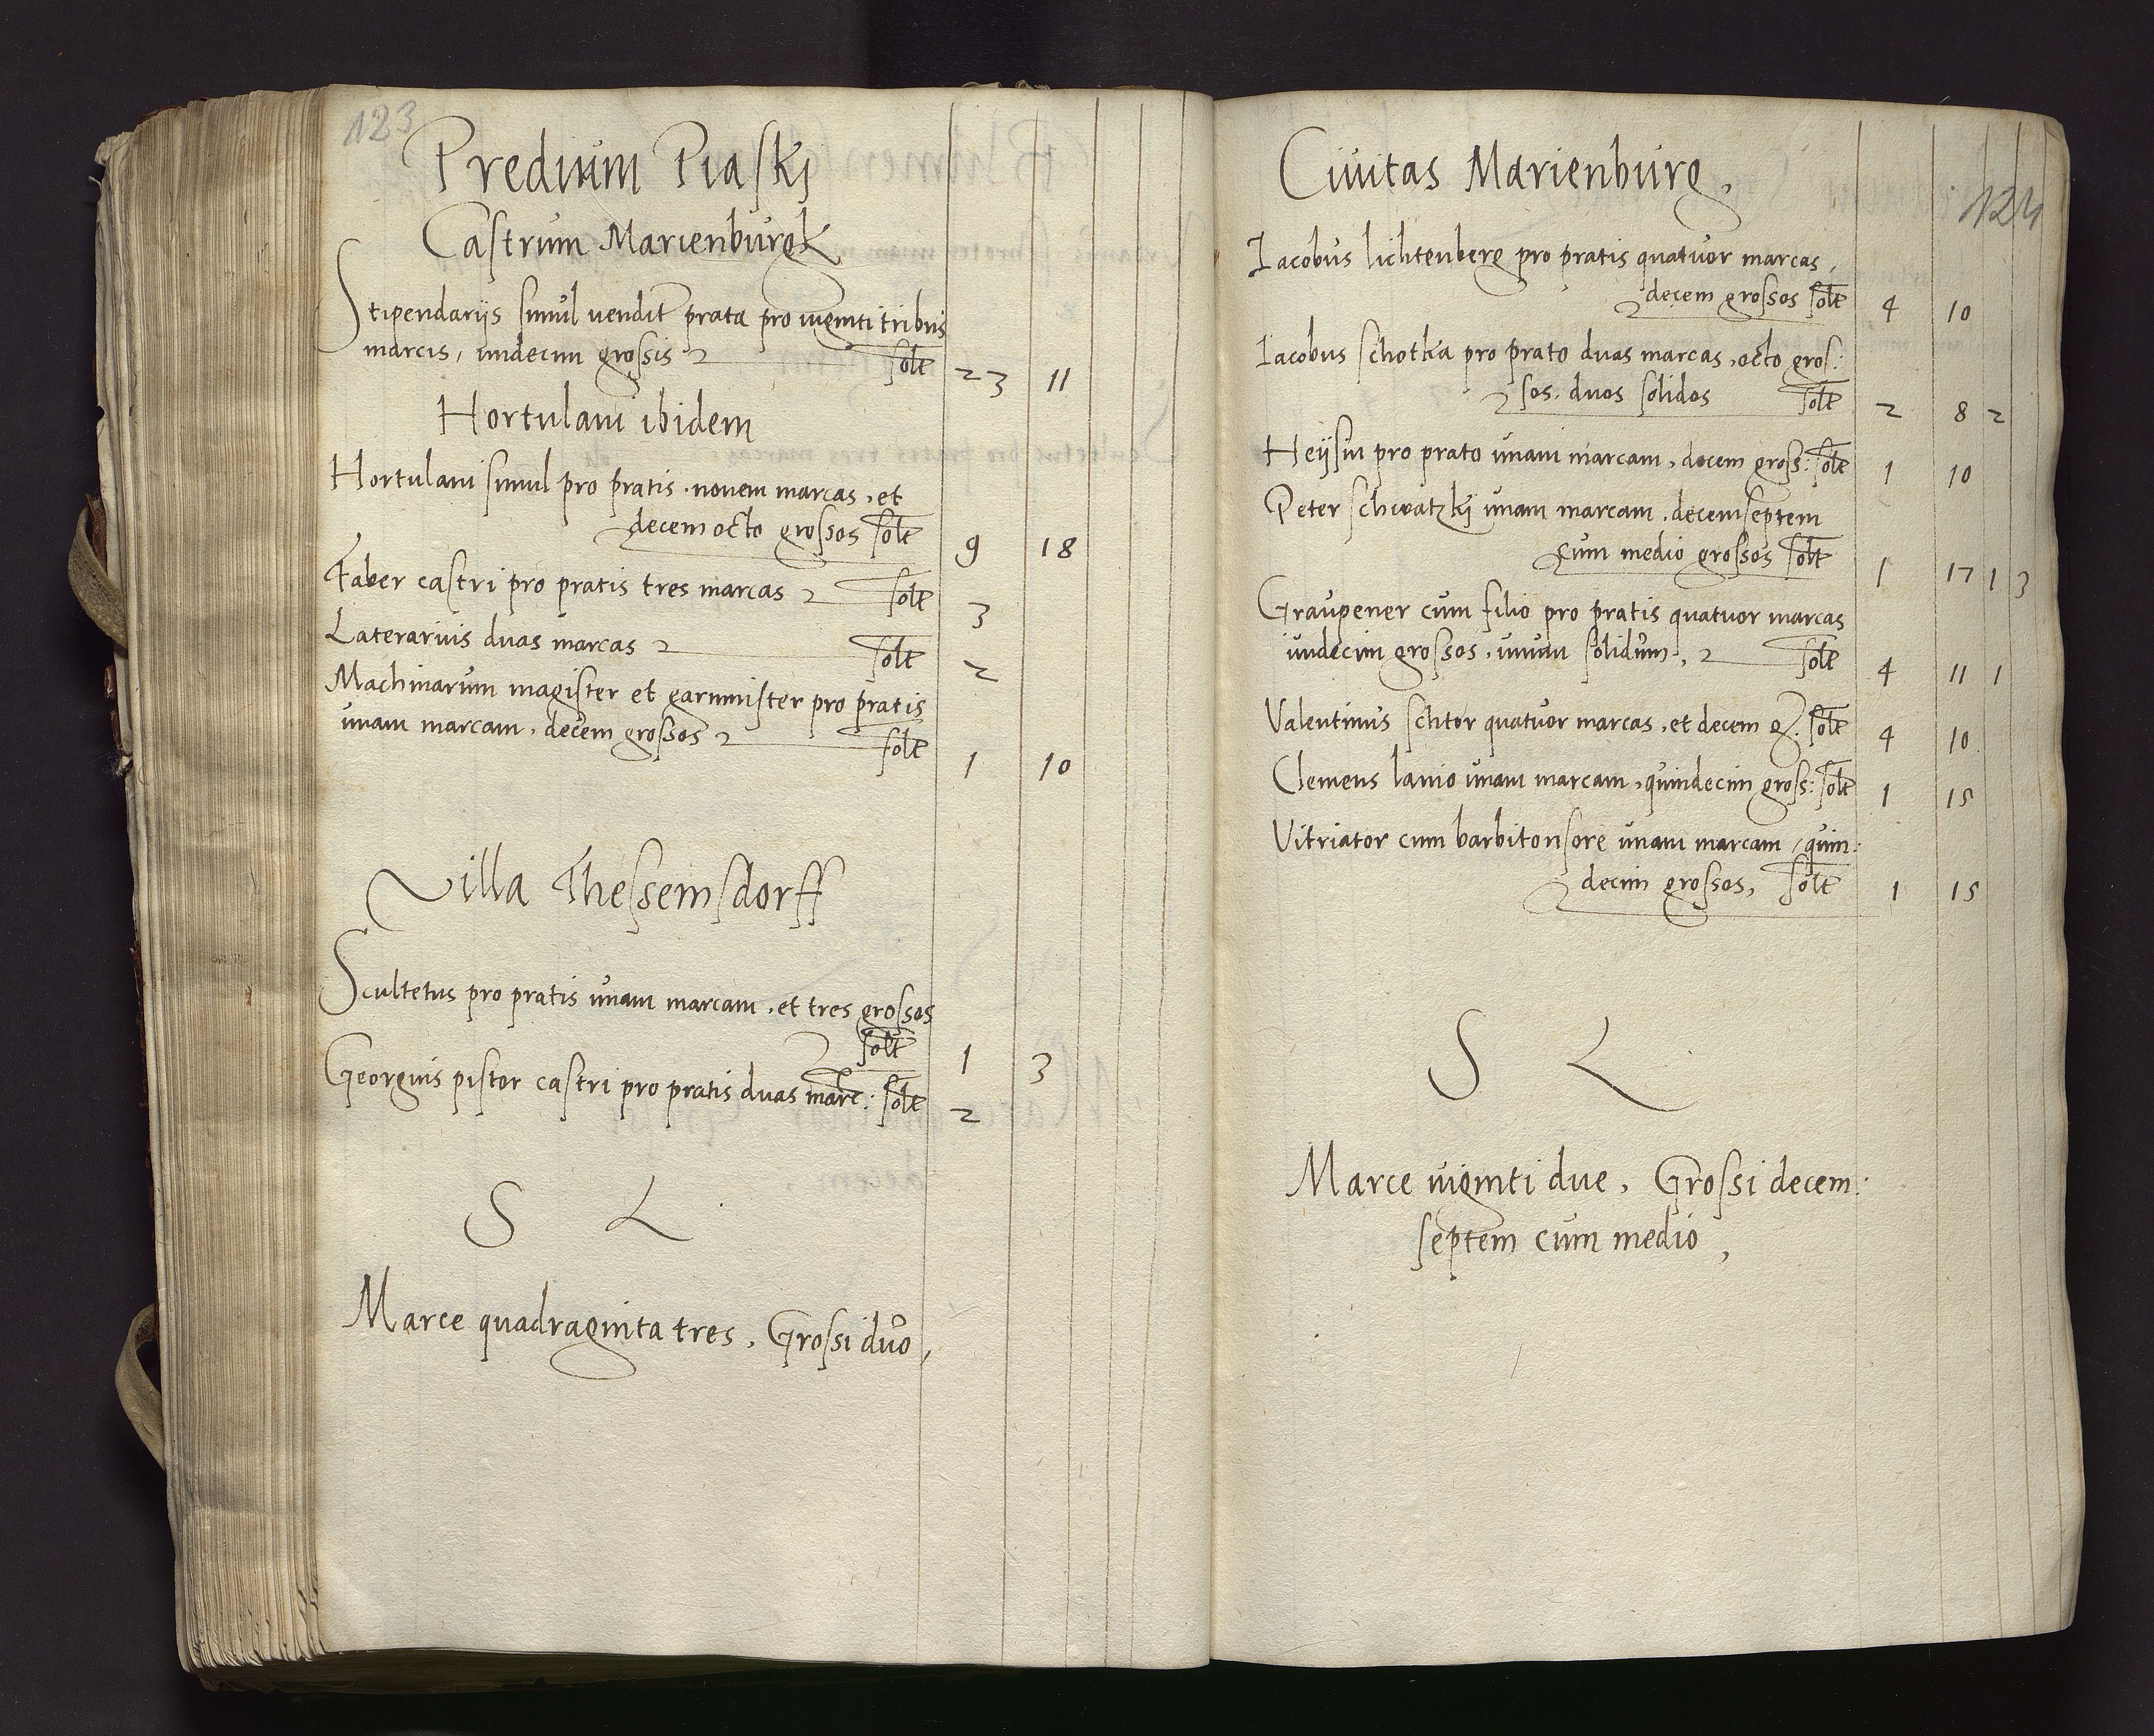 123
Predium Piaskj
Castrum Marienburgk
Stipendariis simul vendit prata pro viginti tribus
marcis, undecim grossis solt 23 11
Hortulani ibidem
Hortulani simul pro pratis . novem marcas , et
decem octo grossos solt 9 18
Faber castri pro pratis tres marcas solt 3
Laterarius duas marcas solt 2
Machinarum magister et garnmister pro pratis
unam marcam , decem grossos solt 1 10
Villa Thessemsdorff
Scultetus pro pratis unam marcam , et tres grossos
solt 1 3
Georgius pistor castri pro pratis duas marc: solt 2
S L
Marce quadraginta tres , Grossi duo ,
124
Civitas Marienburg ,
Iacobus lichtenberg pro pratis quatuor marcas ,
decem grossos solt 4 10
Iacobus schotka pro prato duas marcas , octo gros:
sos , duos solidos solt 2 8 2
Heysin pro prato unam marcam , decem gross: solt 1 10
Peter schwatzkj unam marcam , decemseptem
cum medio grossos solt 1 17 1 3
Graupener cum filio pro pratis quatuor marcas
undecim grossos , unum solidum , solt 4 11 1
Valentinus schtor quatuor marcas , et decem g. solt 4 10
Clemens lanio unam marcam , quindecim gross: solt 1 15
Vitriator cum barbitonsore unam marcam , quin:
decim grossos , solt 1 15
S L
Marce viginti due , Grossi decem:
septem cum medio ,